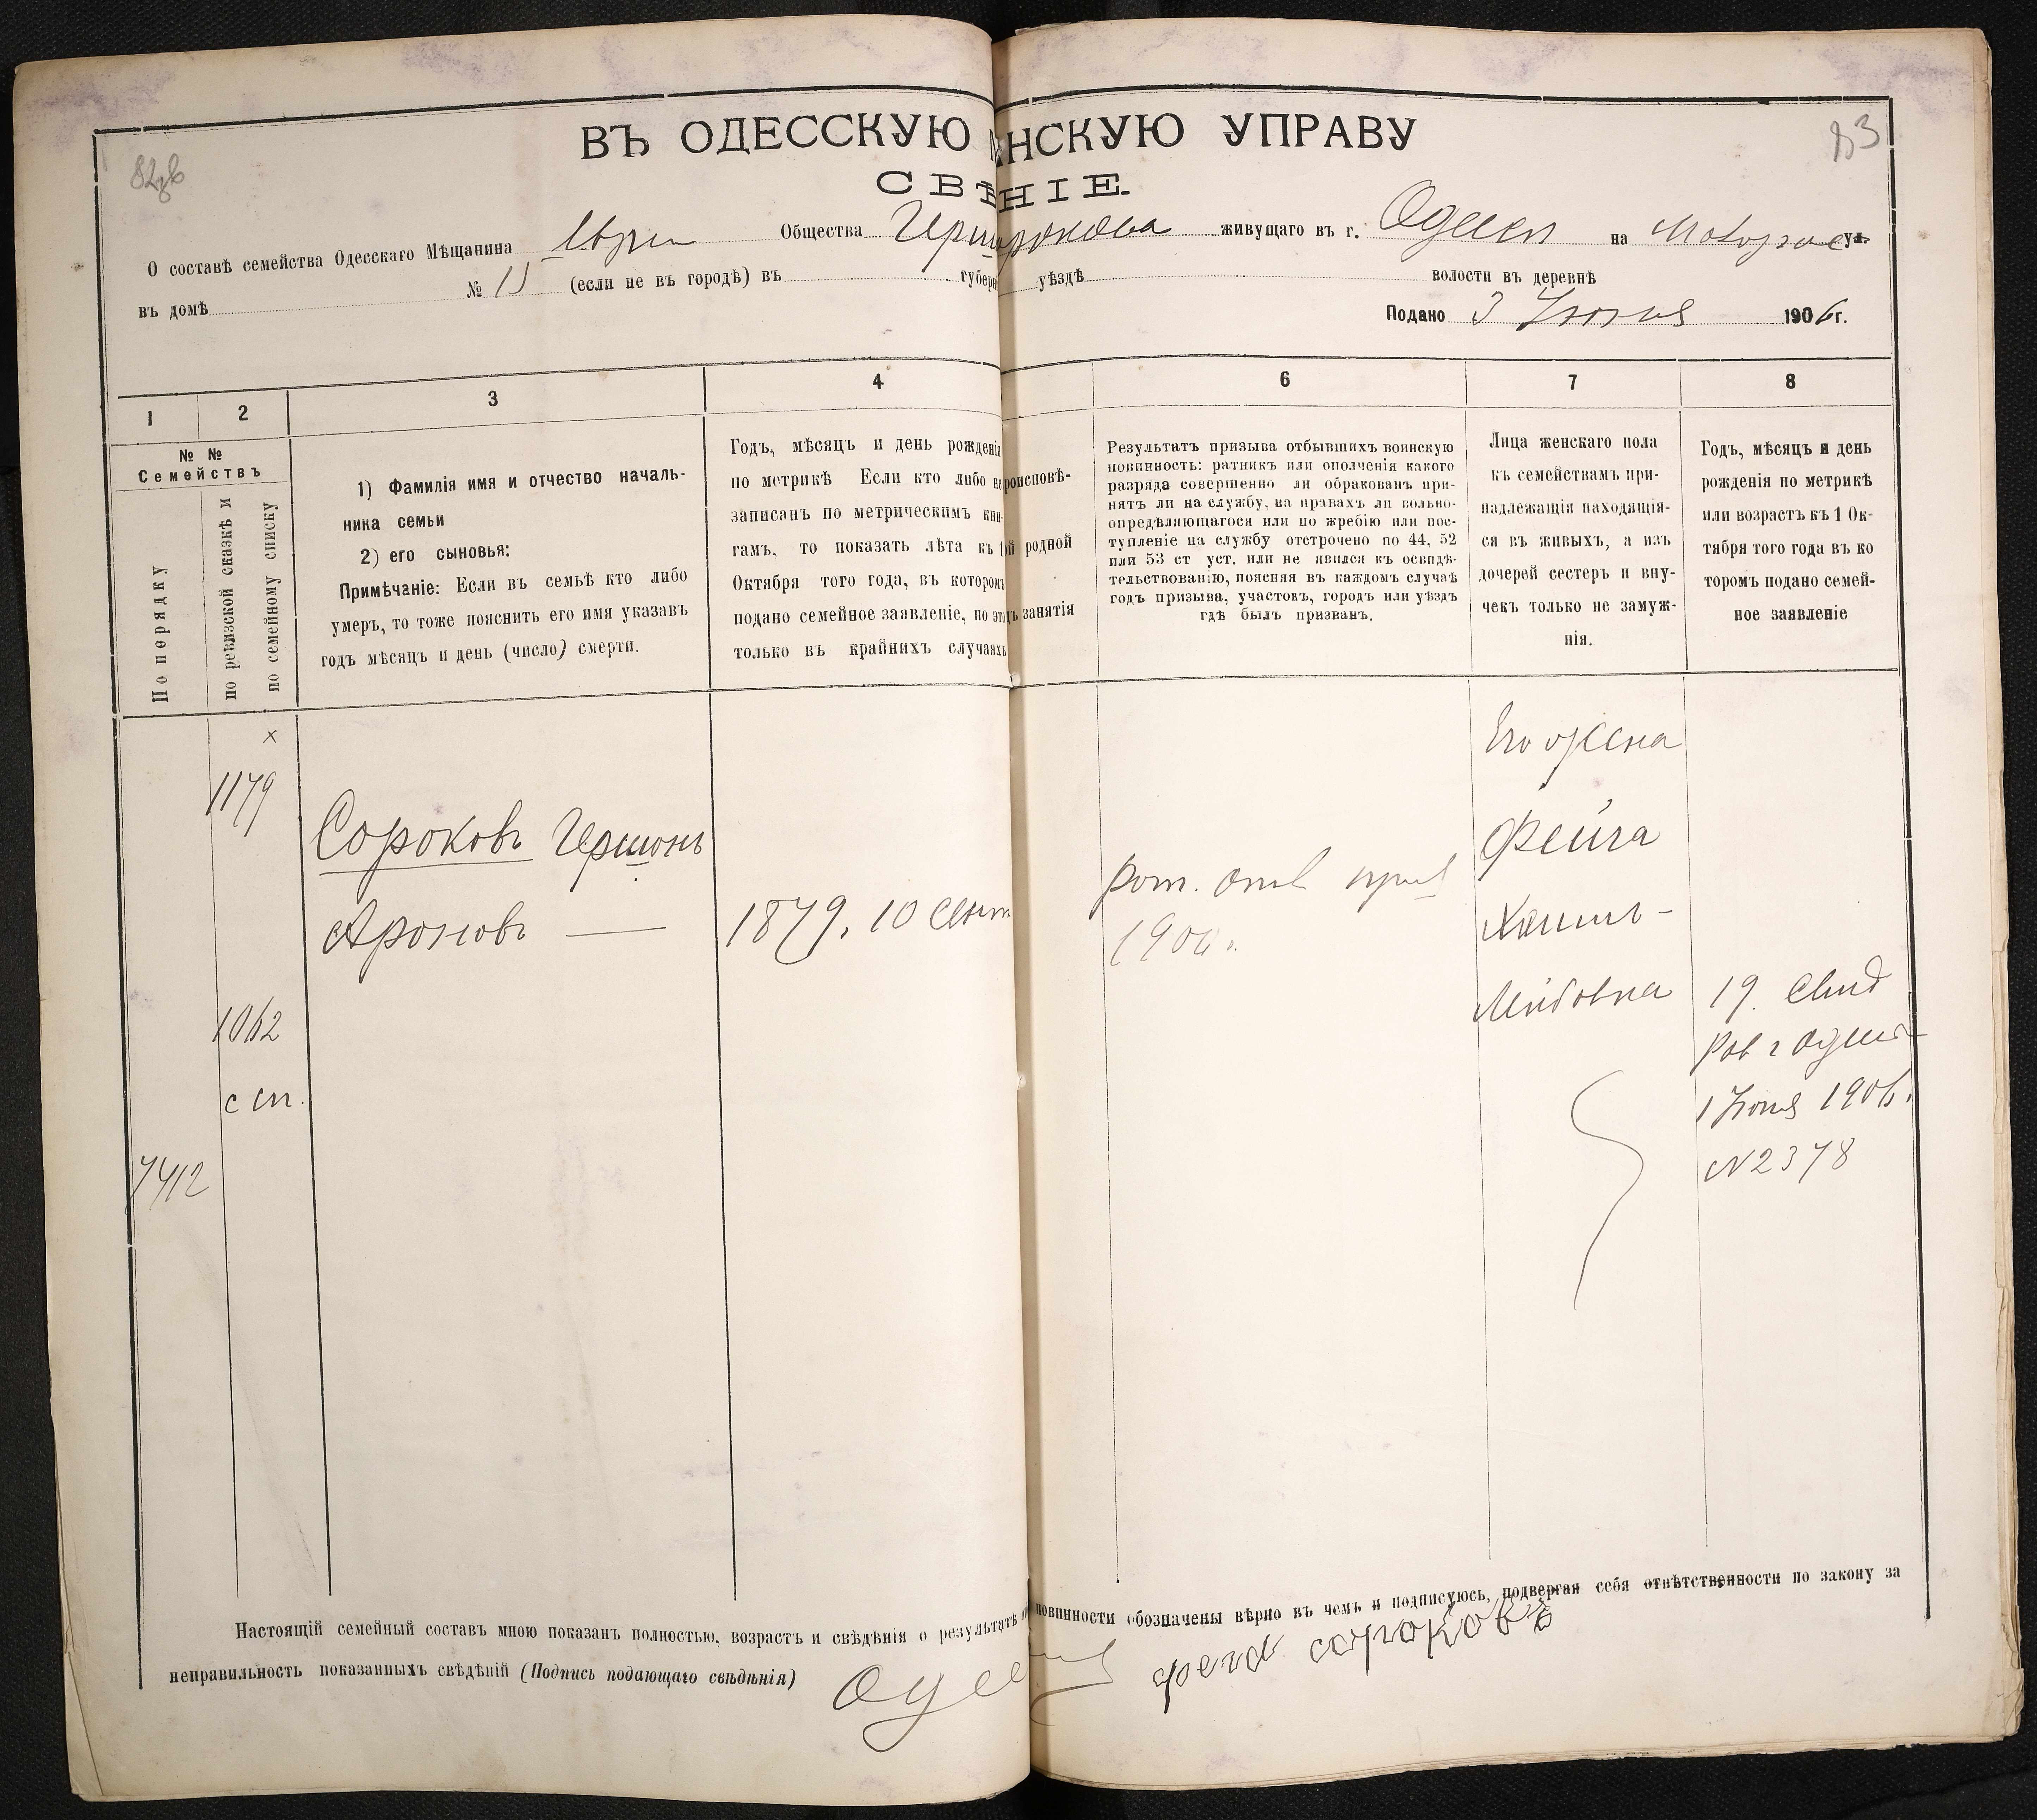 ВЪ ОДЕССКУЮ НСКУЮ УПРАВУ
СВѢНІЕ.
83
О составѣ семейства Одесскаго Мѣщанина Общества живущаго въ г. Одессѣ на ул.
въ домѣ № (если не въ городѣ) въ губерн уѣздѣ волости въ деревнѣ
Подано 3 Іюня 1906 г.
1 2 3 4 6 7 8
№ №
Семействъ
По порядку
по ревизской сказкѣ и
по семейному списку
1) Фамилія имя и отчество началь-
ника семьи
2) его сыновья:
Примѣчаніе: Если въ семьѣ кто либо
умеръ, то тоже пояснить его имя указавъ
годъ мѣсяцъ и день (число) смерти.
Годъ, мѣсяцъ и день рожденія
по метрикѣ Если кто либо не
записанъ по метрическимъ кни-
гамъ, то показать лѣта къ 1
Октября того года, въ которомъ
подано семейное заявленіе, но это
только въ крайнихъ случаяхъ
роисповѣ-
й родной
ъ занятія
Результатъ призыва отбывшихъ воинскую
повинность: ратникъ или ополченія какого
разряда совершенно ли обракованъ при-
нятъ ли на службу, на правахъ ли вольно-
опредѣляющагося или по жребію или пос-
тупленіе на службу отстрочено по 44, 52
или 53 ст уст. или не явился къ освидѣ-
тельствованію, поясняя въ каждомъ случаѣ
годъ призыва, участокъ, городъ или уѣздъ
гдѣ былъ призванъ.
Лица женскаго пола
къ семействамъ при-
надлежащія находящія-
ся въ живыхъ, а изъ
дочерей сестеръ и вну-
чекъ только не замуж-
нія.
Годъ, мѣсяцъ и день
рожденія по метрикѣ
или возрастъ къ 1 Ок-
тября того года въ ко
торомъ подано семей-
ное заявленіе
x
1179
1062
с сп.
7412
Сороковъ Гершонъ
Ароновъ —
1879, 10 Сент
рат. опол приз
1900 г.
Его жена
Фейга
Хаим-
Лейбовна
19. Свид
Рав г Одессы
1 Іюня 1906.
№ 2378
Настоящій семейный составъ мною показанъ полностью, возрастъ и свѣдѣнія о результатѣ повинности обозначены вѣрно въ чемъ и подписуюсь, подвергая себя отвѣтственности по закону за
неправильность показанныхъ свѣдѣній (Подпись подающаго свѣдѣнія)